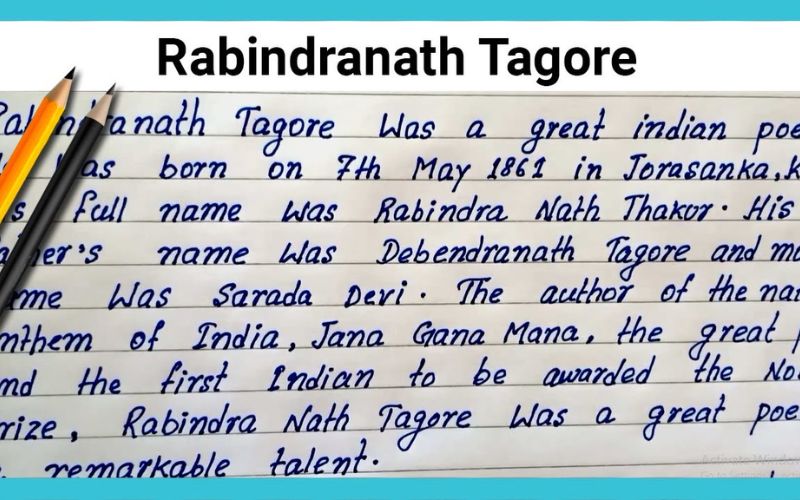 Rabindranath Tagore
anath Tagore Was a great indian poe
as born on 7th May 1861 in Jorasanka, K
s full name was Rabindra Nath Thakor. His
er's name was Debendranath Tagore and mo
me Was Sarada Devi. The author of the na
nthem of India, Jana Gana Mana, the great p
nd the first Indian to be awarded the No
rize, Rabindra Nath Tagore was a great poe
remarkable talent.
Activate Windows